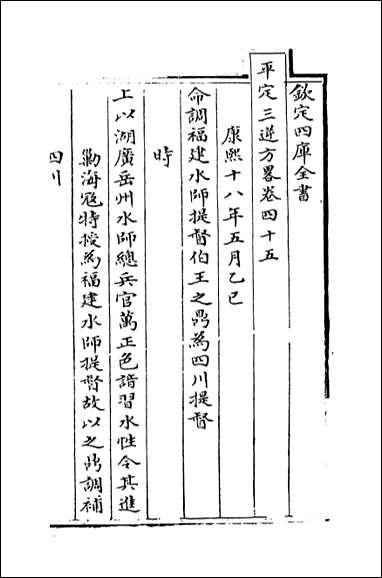 欽定四庫全書
平定三逆方畧卷四十五
康熙十八年五月乙巳
命調福建水師提督伯王之鼎為四川提督
時
上以湖廣岳州水師總兵官萬正色諳習水性令其進
勦海寇特授為福建水師提督故以之鼎調補
四川